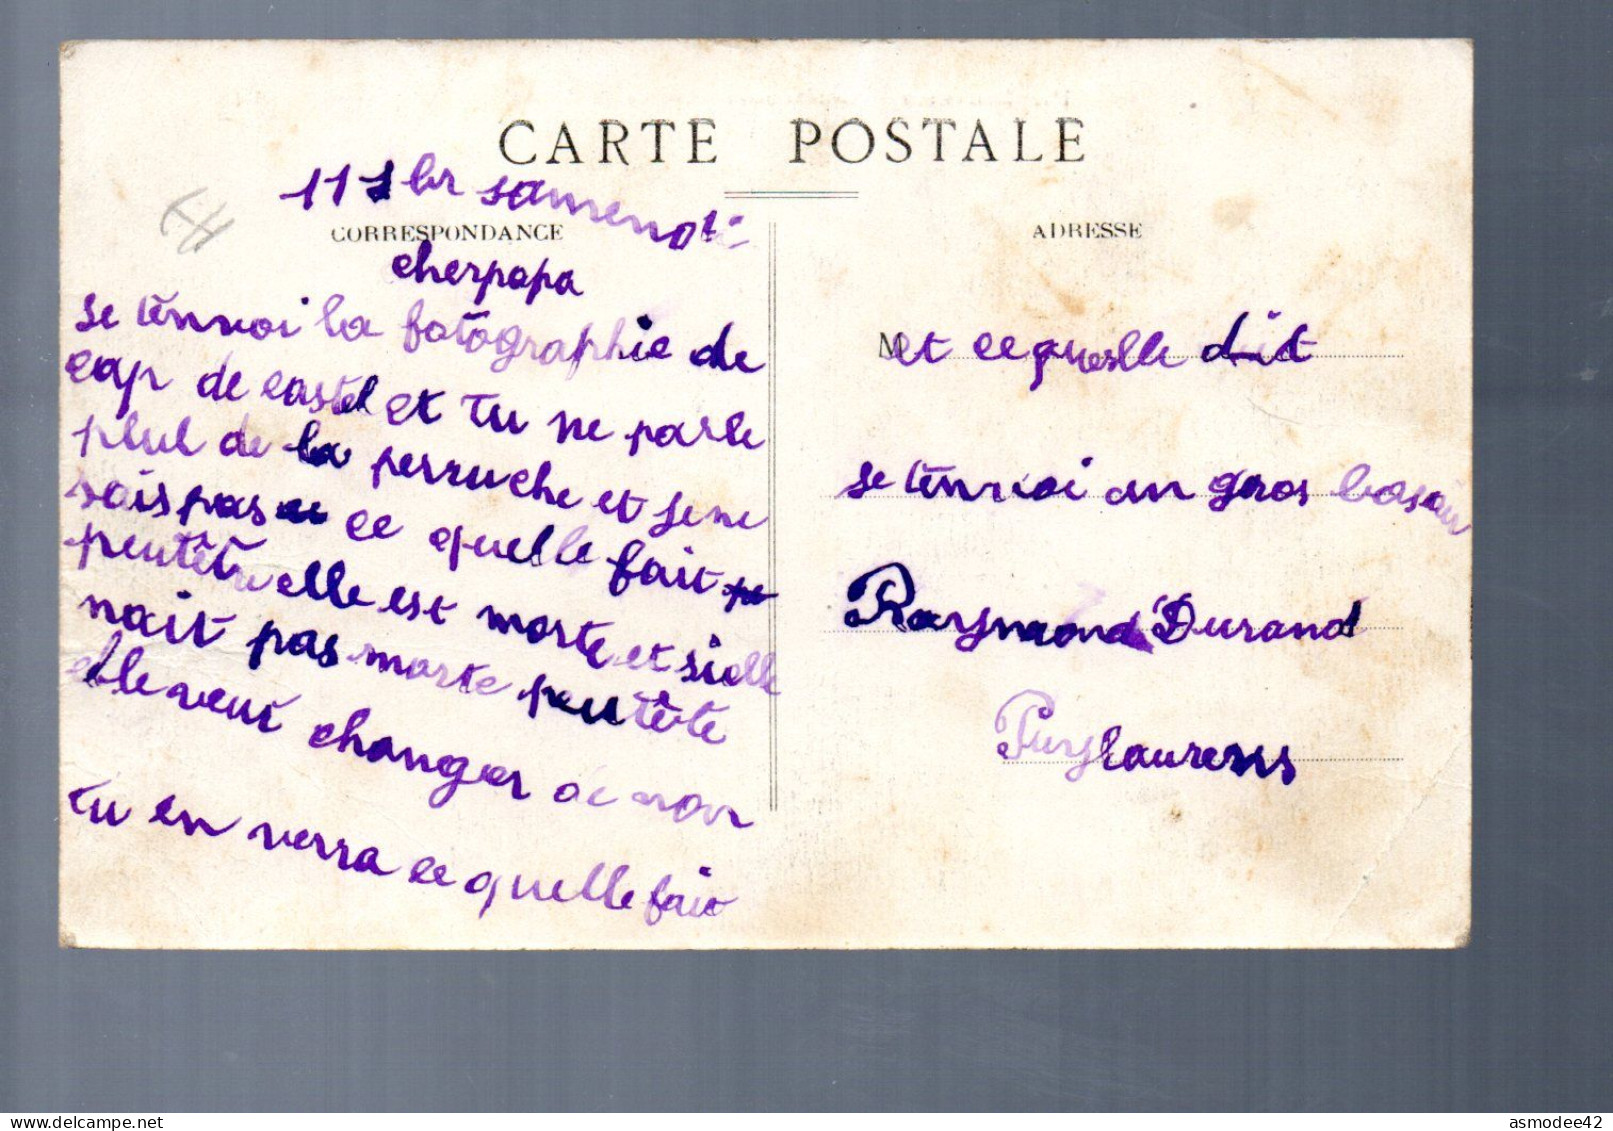 CARTE POSTALE
11 bre samenoti
CORRESPONDANCE
cherpapa
se t'envoi la fotographie de
cap de castel et tu ne parle
plul de la perruche et je ne
sais pas ce quelle fait
peutêtre elle est morte et sielle
nait pas morte peutête
elle veut changer de
tu en verra ce quelle fait
ADRESSE
M et ce quelle dit
se t'envoi un gros basair
Raymond Durand
Puylaurens
asmodee42